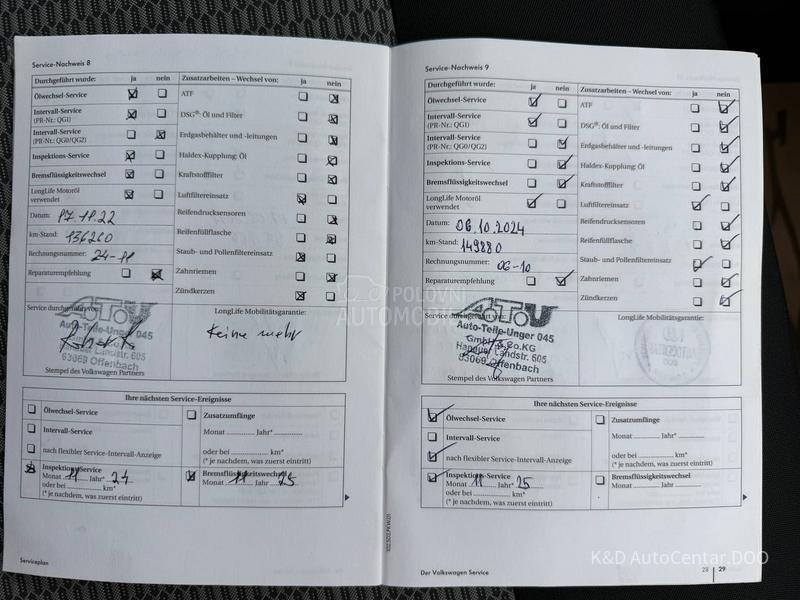 Service-Nachweis 8
Durchgeführt wurde: ja nein
Ölwechsel-Service
Intervall-Service
(PR-Nr.: QG1)
Intervall-Service
(PR-Nr.: QG0/QG2)
Inspektions-Service
Bremsflüssigkeitswechsel
LongLife Motoröl
verwendet
Datum: 17.11.22
km-Stand: 136260
Rechnungsnummer: 24-11
Reparaturempfehlung
Zusatzarbeiten – Wechsel von: ja nein
ATF
DSG®: Öl und Filter
Erdgasbehälter und -leitungen
Haldex-Kupplung: Öl
Kraftstofffilter
Luftfiltereinsatz
Reifendrucksensoren
Reifenfüllflasche
Staub- und Pollenfiltereinsatz
Zahnriemen
Zündkerzen
Service durchgeführt von:
ATU
Auto-Teile-Unger 045
Landstr. 605
63069 Offenbach
Stempel des Volkswagen Partners
LongLife Mobilitätsgarantie:
Keine mehr
Ihre nächsten Service-Ereignisse
Ölwechsel-Service
Intervall-Service
nach flexibler Service-Intervall-Anzeige
Inspektions-Service
Monat 11 Jahr* 24
oder bei km*
(* je nachdem, was zuerst eintritt)
Zusatzumfänge
Monat Jahr*
oder bei km*
(* je nachdem, was zuerst eintritt)
Bremsflüssigkeitswechsel
Monat 11 Jahr 25
Serviceplan
Service-Nachweis 9
Durchgeführt wurde: ja nein
Ölwechsel-Service
Intervall-Service
(PR-Nr.: QG1)
Intervall-Service
(PR-Nr.: QG0/QG2)
Inspektions-Service
Bremsflüssigkeitswechsel
LongLife Motoröl
verwendet
Datum: 06.10.2024
km-Stand: 149880
Rechnungsnummer: 06-10
Reparaturempfehlung
Zusatzarbeiten – Wechsel von: ja nein
ATF
DSG®: Öl und Filter
Erdgasbehälter und -leitungen
Haldex-Kupplung: Öl
Kraftstofffilter
Luftfiltereinsatz
Reifendrucksensoren
Reifenfüllflasche
Staub- und Pollenfiltereinsatz
Zahnriemen
Zündkerzen
Service durchgeführt von:
ATU
Auto-Teile-Unger 045
GmbH & Co.KG
Hanauer Landstr. 605
63069 Offenbach
Stempel des Volkswagen Partners
LongLife Mobilitätsgarantie:
Ihre nächsten Service-Ereignisse
Ölwechsel-Service
Intervall-Service
nach flexibler Service-Intervall-Anzeige
Inspektions-Service
Monat 11 Jahr* 25
oder bei km*
(* je nachdem, was zuerst eintritt)
Zusatzumfänge
Monat Jahr*
oder bei km*
(* je nachdem, was zuerst eintritt)
Bremsflüssigkeitswechsel
Monat Jahr
Der Volkswagen Service
28 29
POLOVNI
AUTOMOBILI
K&D AutoCentar DOO